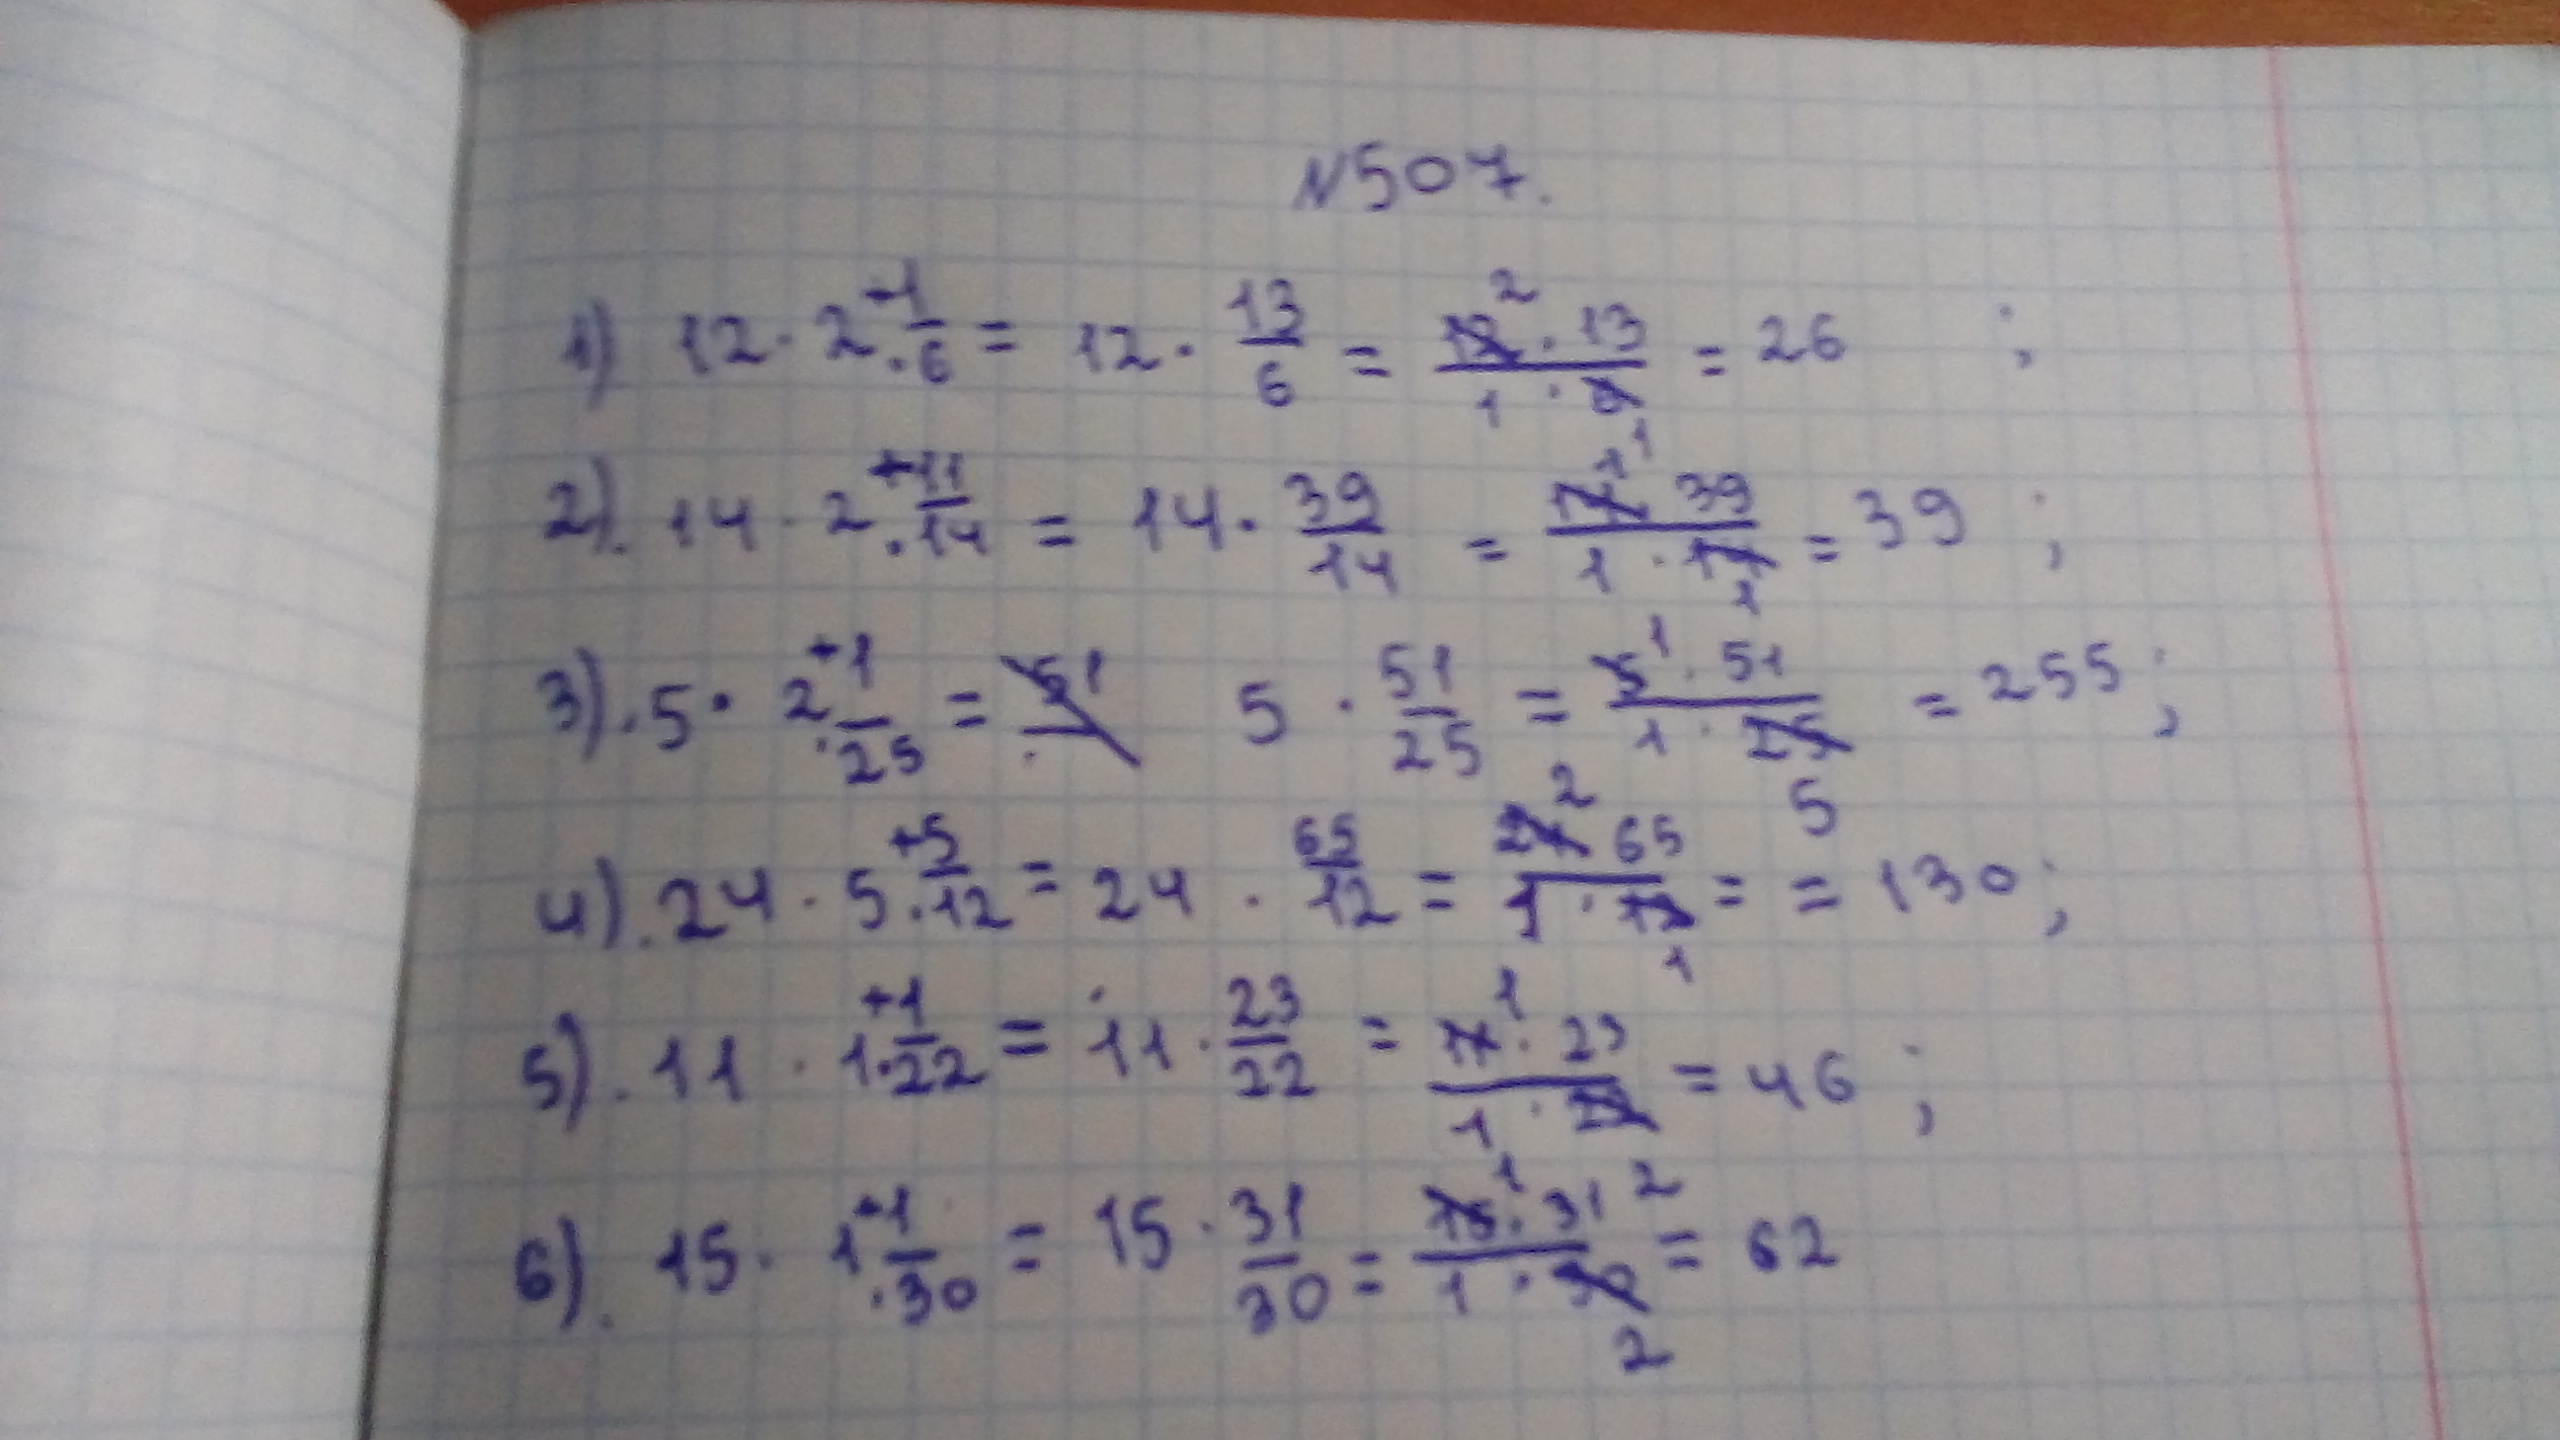 N507.
1) 12 · 2 +1/·6 = 12 · 13/6 = 12² · 13 / 1 · 6 = 26 ;
2). 14 · 2 +11/·14 = 14 · 39/14 = 14¹ 39 / 1 · 14 1 = 39 ;
3). 5 · 2 +1/·25 = 51/ 5 · 51/25 = 5¹ · 51 / 1 · 25 5 = 255 ;
4). 24 · 5 +5/·12 = 24 · 65/12 = 24² 65 / 1 · 12 1 = = 130 ;
5). 11 · 1 +1/·22 = 11 · 23/22 = 11¹ · 23 / 1 · 22 2 = 46 ;
6). 15 · 1 +1/·30 = 15 · 31/30 = 15¹ · 31 / 1 · 30 2 = 62